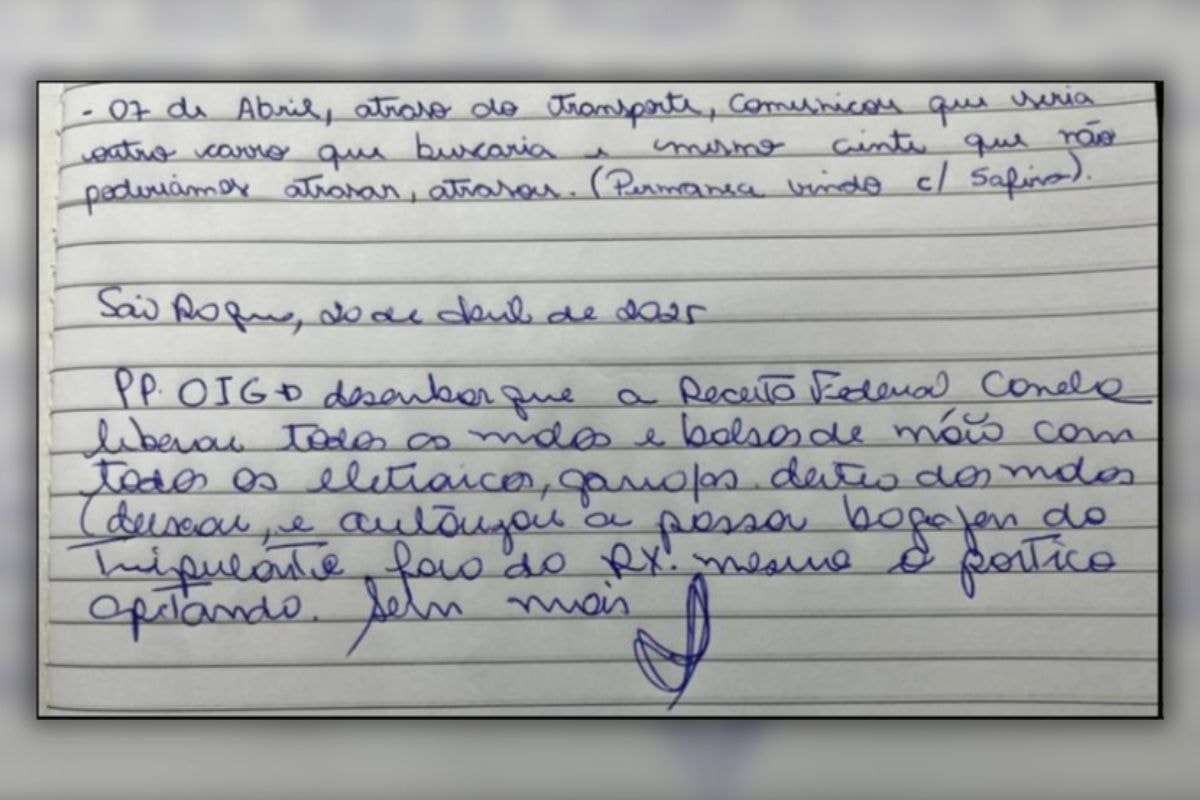 - 07 de Abril, atraso do transporte, comunicou que seria
outro carro que buscaria e mesmo ciente que não
poderiamos atrasar, atrasou. (Permanea vindo c/ Safira).
São Roque, 20 de Abril de 2025
PP. O desembarque a Receita Federal
liberou todos os malas e bolsas de mão com
todos os eletraicos, garrafas dentro das malas
(deixou, e autorizou a passar bagagem do
tripulante fora do RX. mesmo o portico
apitando. Sem mais